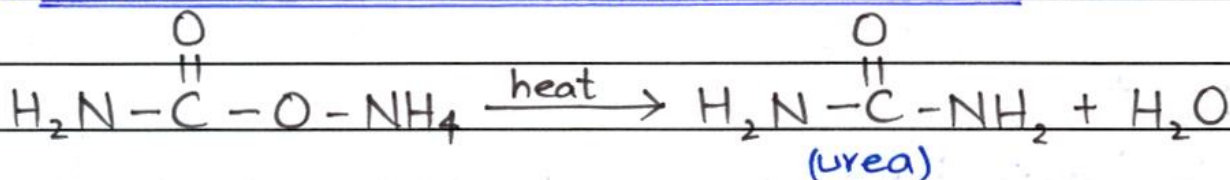 O O
|| ||
H₂N – C – O – NH₄ heat → H₂N – C – NH₂ + H₂O
(urea)